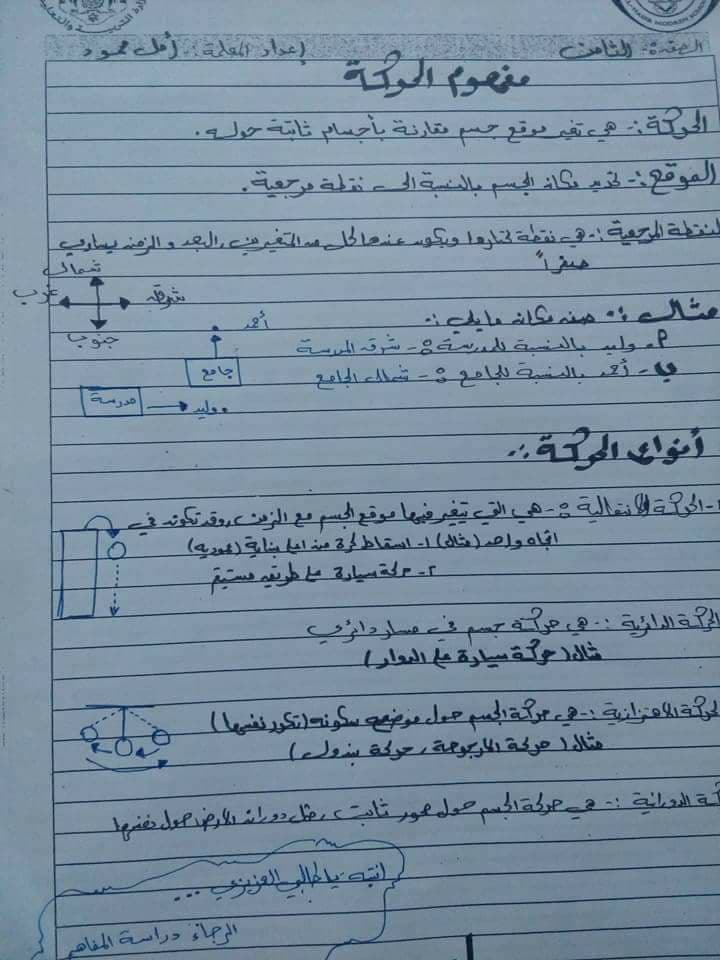 وزارة التربية والتعليم
الصف:- الثامن
إعداد المعلمة:- أمل محمود
مفهوم الحركة
الحركة :- هي تغير موقع جسم مقارنة بأجسام ثابتة حوله.
الموقع :- تحديد مكان الجسم بالنسبة الى نقطة مرجعية.
النقطة المرجعية :- هي نقطة نختارها ويكون عندها كل من المتغيرين, البعد والزمن يساوي
صفراً
شمال
غرب
شرق
جنوب
مثال :- صف مكان ما يلي :-
أ- وليد بالنسبة للمدرسة :- شرق المدرسة
ب- أحمد بالنسبة للجامع :- شمال الجامع
أحمد
جامع
مدرسة
وليد
أنواع الحركة :-
١- الحركة الانتقالية :- هي التي يتغير فيها موقع الجسم مع الزمن, وقد تكون في
اتجاه واحد (مثال) ١- اسقاط كرة من اعلى بناية (عمودية)
٢- حركة سيارة على طريق مستقيم
الحركة الدائرية :- هي حركة جسم في مسار دائري
مثال (حركة سيارة على الدوار)
الحركة الاهتزازية :- هي حركة الجسم حول موضع سكونه (تكرر نفسها)
مثال (حركة المرجوحة, حركة بندول)
الدورانية :- هي حركة الجسم حول محور ثابت, مثل دوران الأرض حول نفسها
انتبه يا طالبي العزيزي ...
الرجاء دراسة المفاهيم